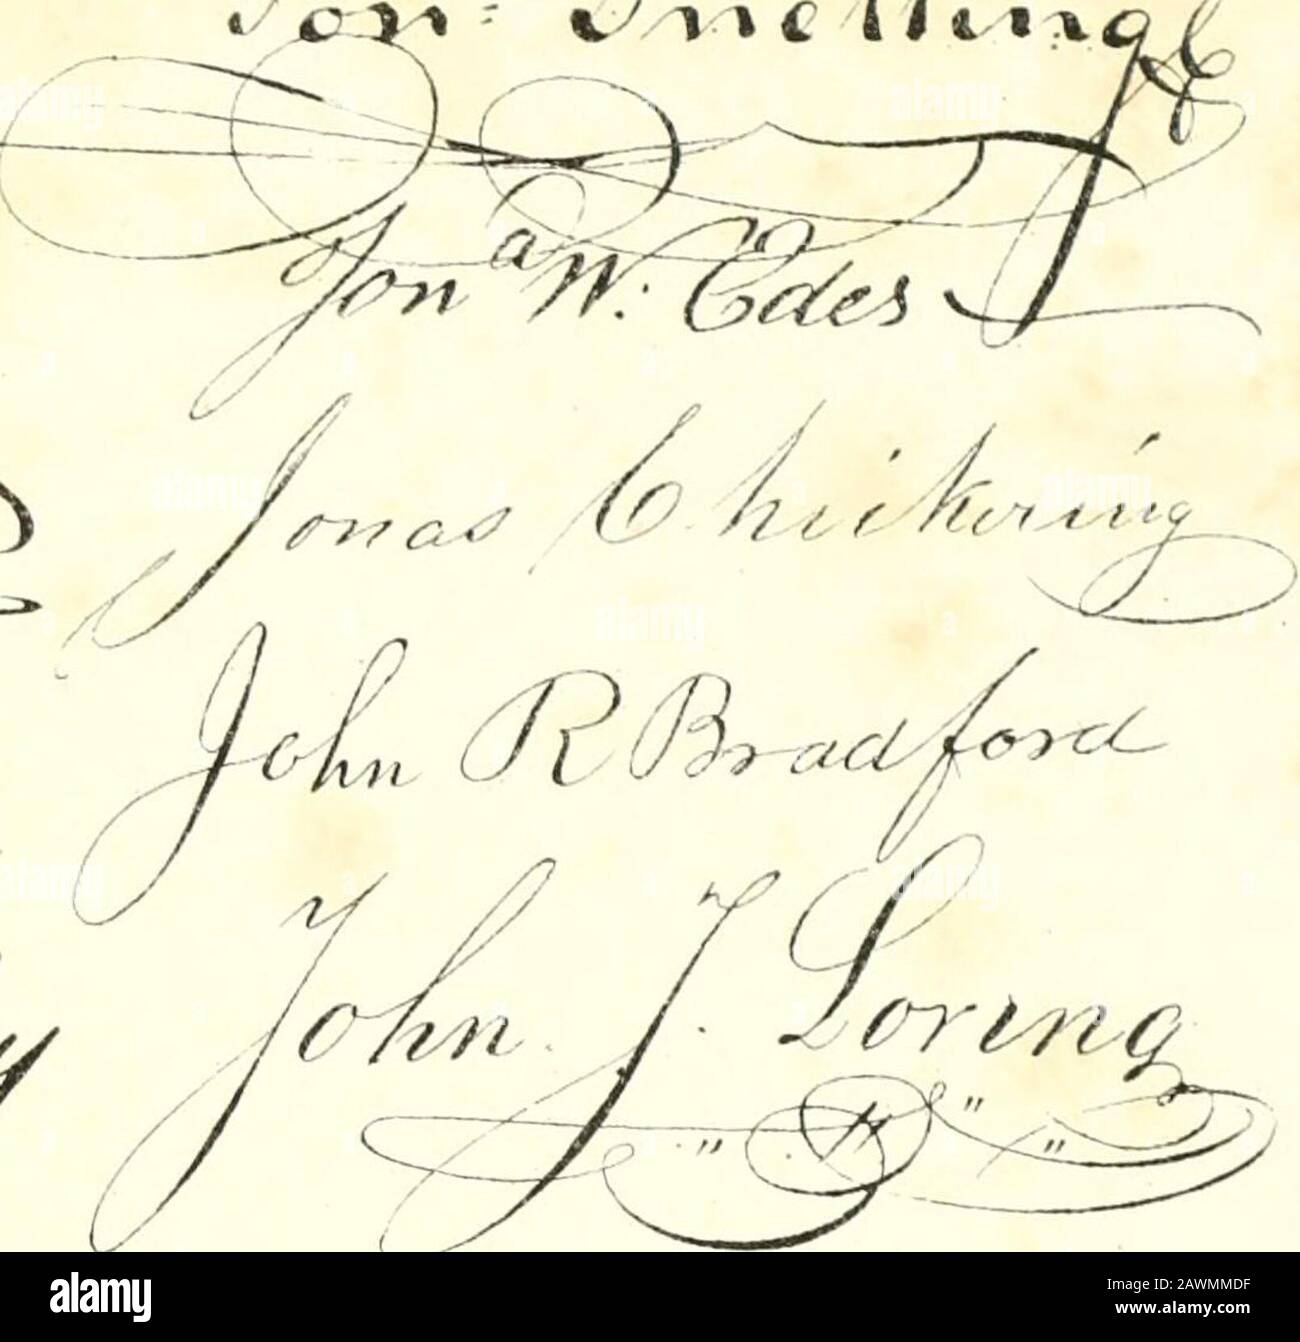 Jon. Snelling
Jonª W. Edes
Jonas Chickering
John R Bradford
John J. Loring
alamy
Image ID: 2AWMMDF
www.alamy.com